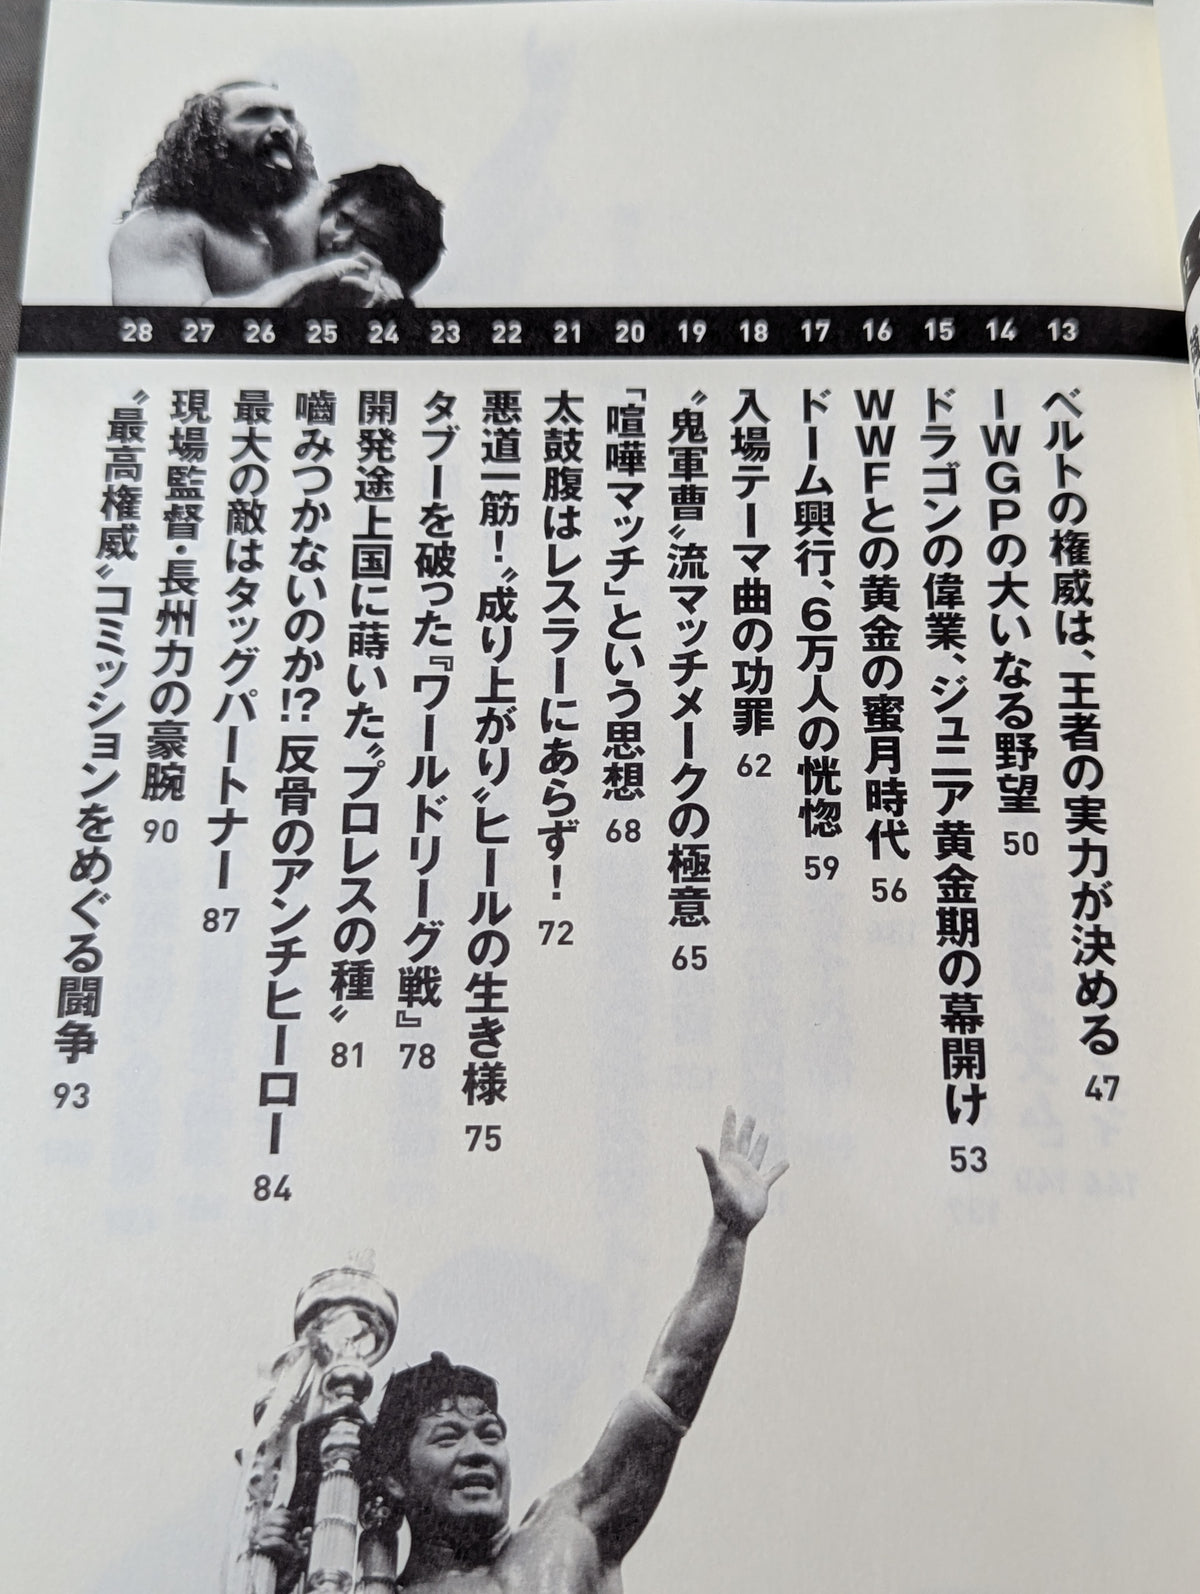 13 ベルトの権威は、王者の実力が決める 47
14 IWGPの大いなる野望 50
15 ドラゴンの偉業、ジュニア黄金期の幕開け 53
16 WWFとの黄金の蜜月時代 56
17 ドーム興行、6万人の恍惚 59
18 入場テーマ曲の功罪 62
19 〝鬼軍曹〟流マッチメークの極意 65
20 「喧嘩マッチ」という思想 68
21 太鼓腹はレスラーにあらず！ 72
22 悪道一筋！〝成り上がり〟ヒールの生き様 75
23 タブーを破った『ワールドリーグ戦』 78
24 開発途上国に蒔いた〝プロレスの種〟 81
25 嚙みつかないのか!? 反骨のアンチヒーロー 84
26 最大の敵はタッグパートナー 87
27 現場監督・長州力の豪腕 90
28 〝最高権威〟コミッションをめぐる闘争 93